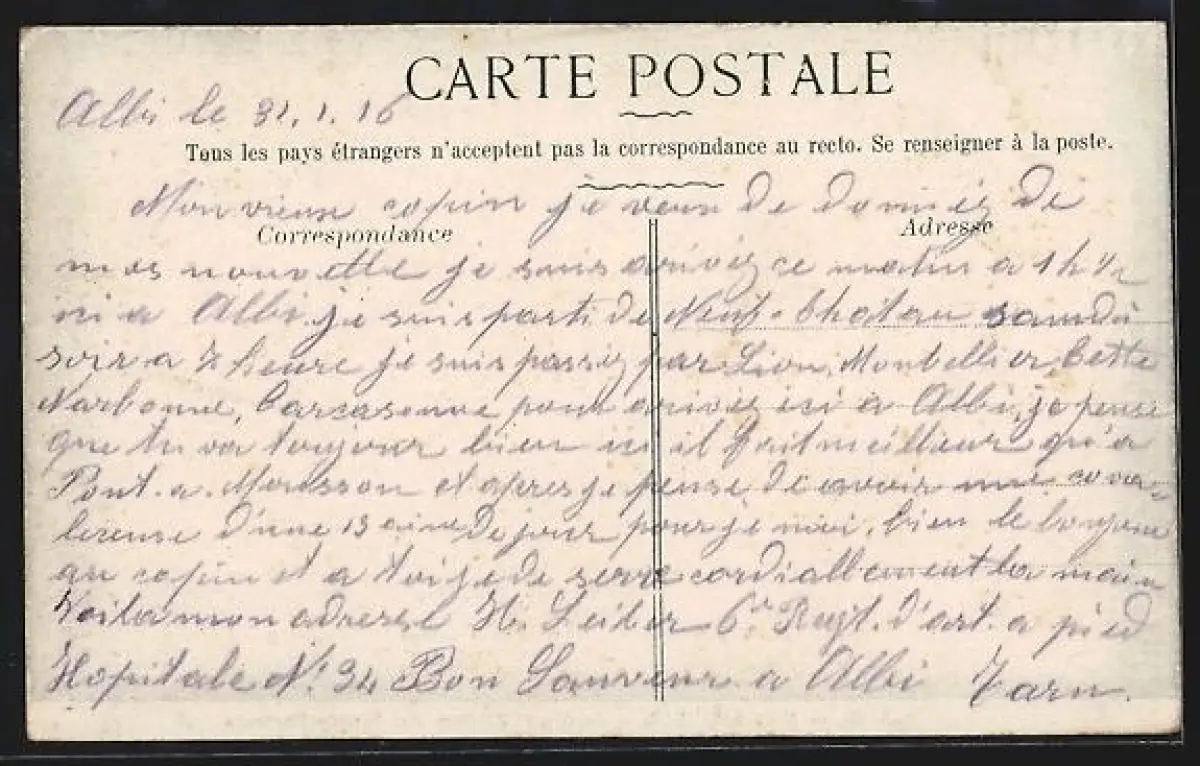 CARTE POSTALE
Albi le 31.1.16
Tous les pays étrangers n'acceptent pas la correspondance au recto. Se renseigner à la poste.
Mon vieux copin je veux de donniez de
Correspondance
Adresse
mes nouvelle je suis arrivez ce matin a 1 h 1/2
ici a Albi. je suis parti de Neuf-Chatau samdi
soir a 7 heure je suis passez par Lion, Montbellier, Cette
Narbonne, Carcasonne pour arivez ici à Albi, je pense
que tu va toujour bien ici il fait meilleur qu'a
Pont. a. Mousson et apres je pense de avoir une
d'une 15 aine de jour pour je bien le bonjour
au copin et a toi je de serre cordiallement la main
Voila mon adresse H. 6e Regt. d'art. a pied
Hopitale No 34 Bon Sauveur a Albi Tarn.